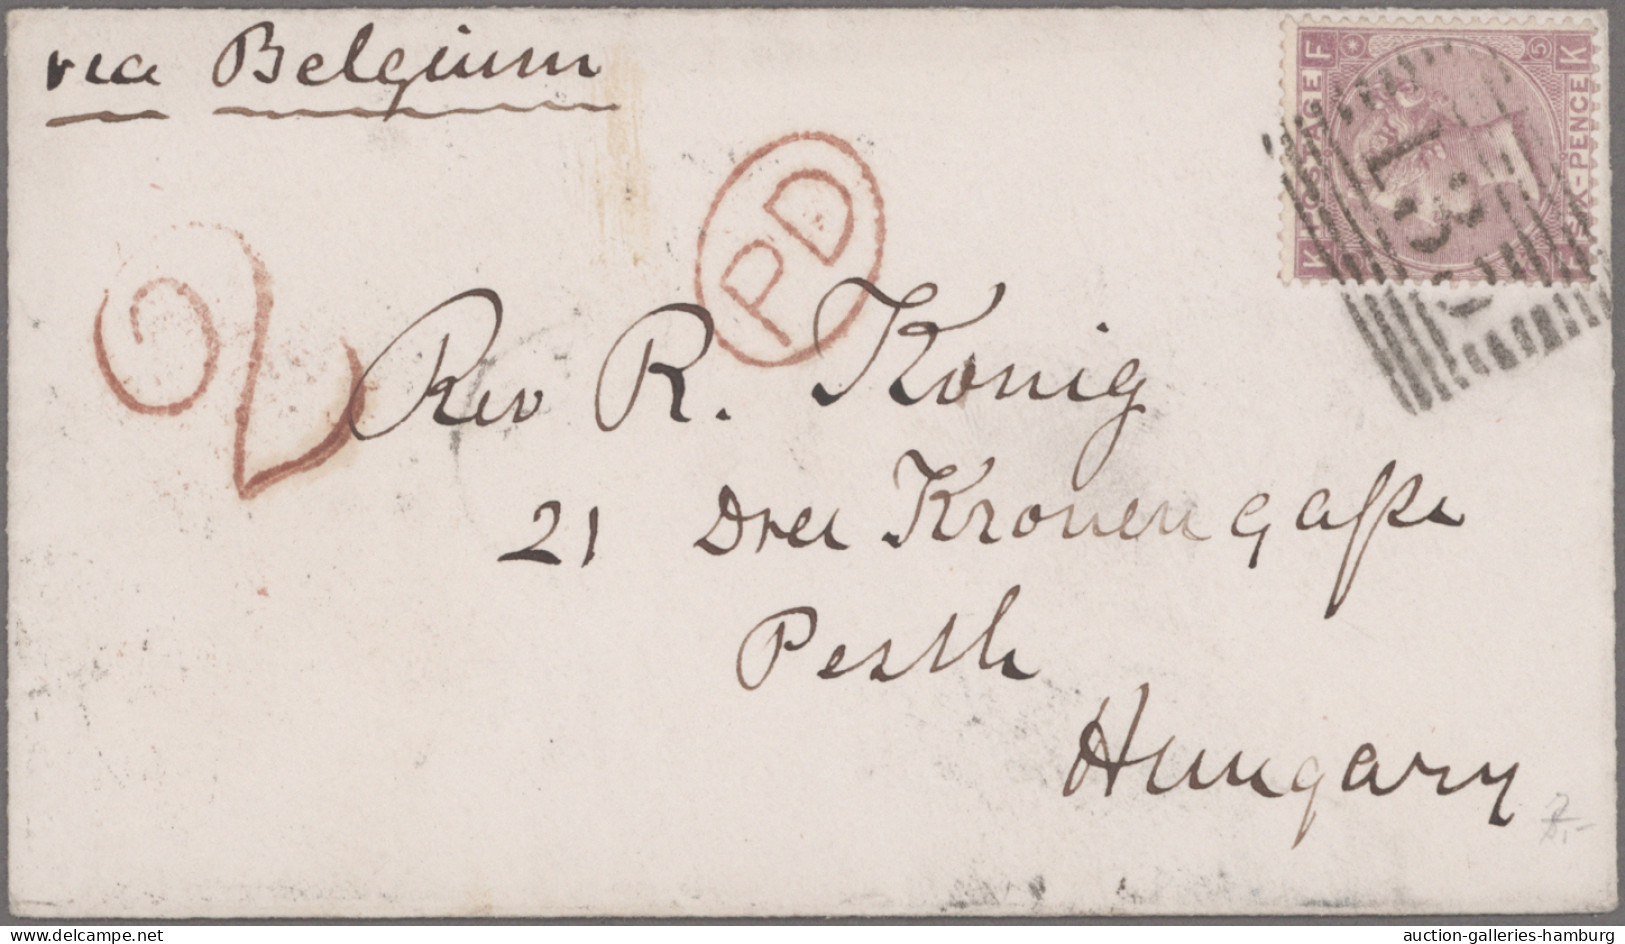 via Belgium
PD
2
F K
POSTAGE
SIX-PENCE
5
K F
13
Rev R. Konig
21 Drei Kronengaſse
Pesth
Hungary
www.delcampe.net
auction-galleries-hamburg